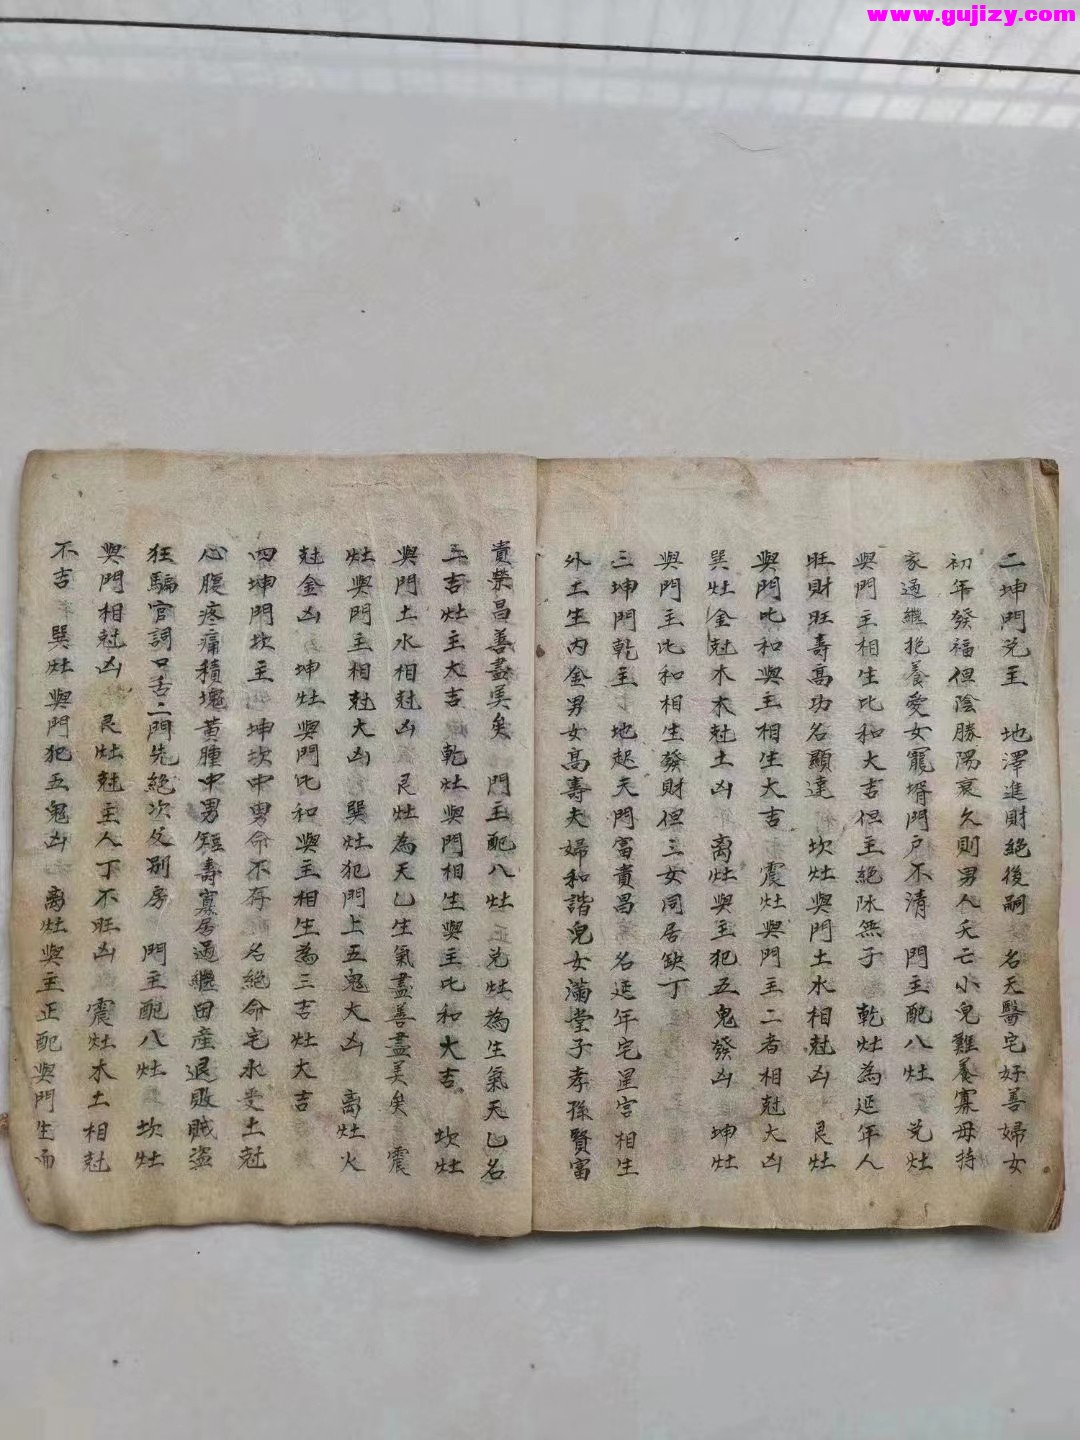 www.gujizy.com
二坤門兑主 地澤進財絕後嗣 名天醫宅好善婦女
初年發福但陰勝陽衰久則男人夭亡小兒難養寡母持
家過継抱養愛女寵壻門户不清 門主配八灶 兑灶
與門主相生比和大吉但主絕阦無子 乾灶為延年人
旺財旺壽高功名顯達 坎灶與門土水相尅凶 艮灶
與門比和與主相生大吉 震灶與門主二者相尅大凶
巽灶金尅木木尅土凶 离灶與主犯五鬼發凶 坤灶
與門主比和相生發財但三女同居缺丁
三坤門乾主 地起天門富貴昌 名延年宅星宫相生
外土生内金男女高壽夫婦和諧兒女滿堂子孝孫賢富
貴榮昌善盡美矣 門主配八灶 兑灶為生氣天乙名
三吉灶主大吉 乾灶與門相生與主比和大吉 坎灶
與門土水相尅凶 艮灶為天乙生氣盡善盡美矣 震
灶與門主相尅大凶 巽灶犯門上五鬼大凶 离灶火
尅金凶 坤灶與門比和與主相生為三吉灶大吉
四坤門坎主 坤坎中男命不存 名絕命宅水受土尅
心腹疼痛積塊黃腫中男短壽寡居過継田產退敗賊盗
狂騙官詞口舌二門先絕次及别房 門主配八灶 坎灶
與門相尅凶 艮灶尅主人丁不旺凶 震灶木土相尅
不吉 巽灶與門犯五鬼凶 离灶與主正配與門生而